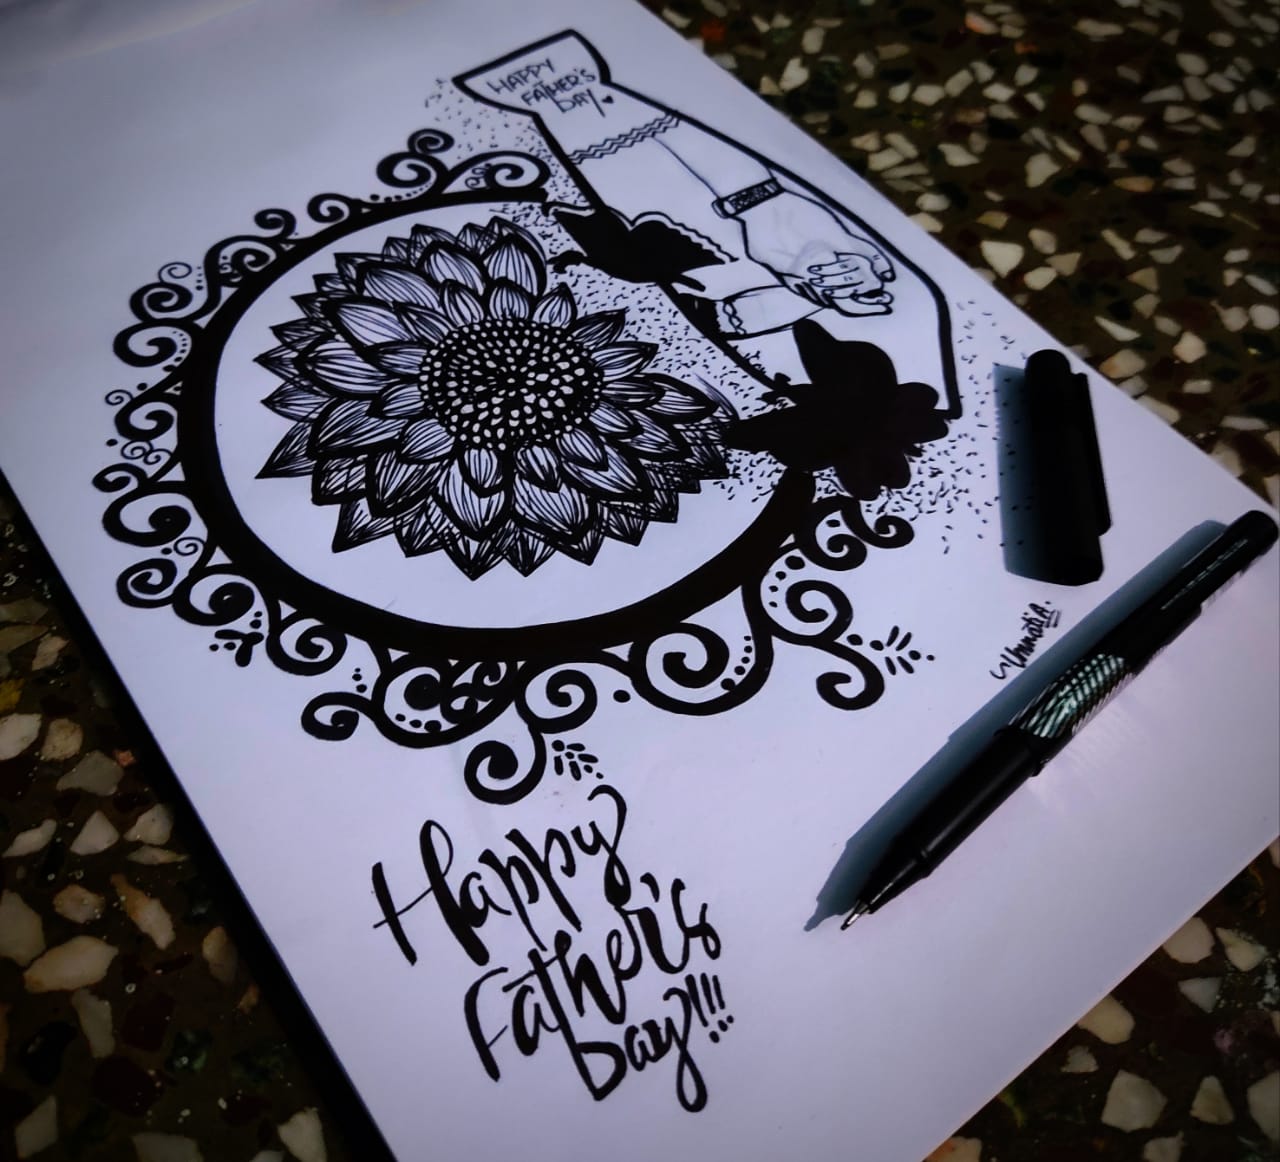 HAPPY
FATHER'S
DAY
Unnati A.
Happy
Father's
Day!!!